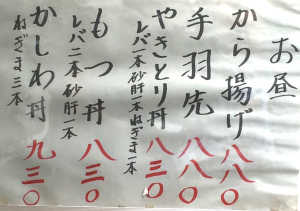 お昼
から揚げ 八八〇
手羽先 八八〇
やきとり丼 八三〇
レバ一本砂肝一本ねぎま一本
もつ丼 八三〇
レバ二本砂肝一本
かしわ丼 九三〇
ねぎま三本